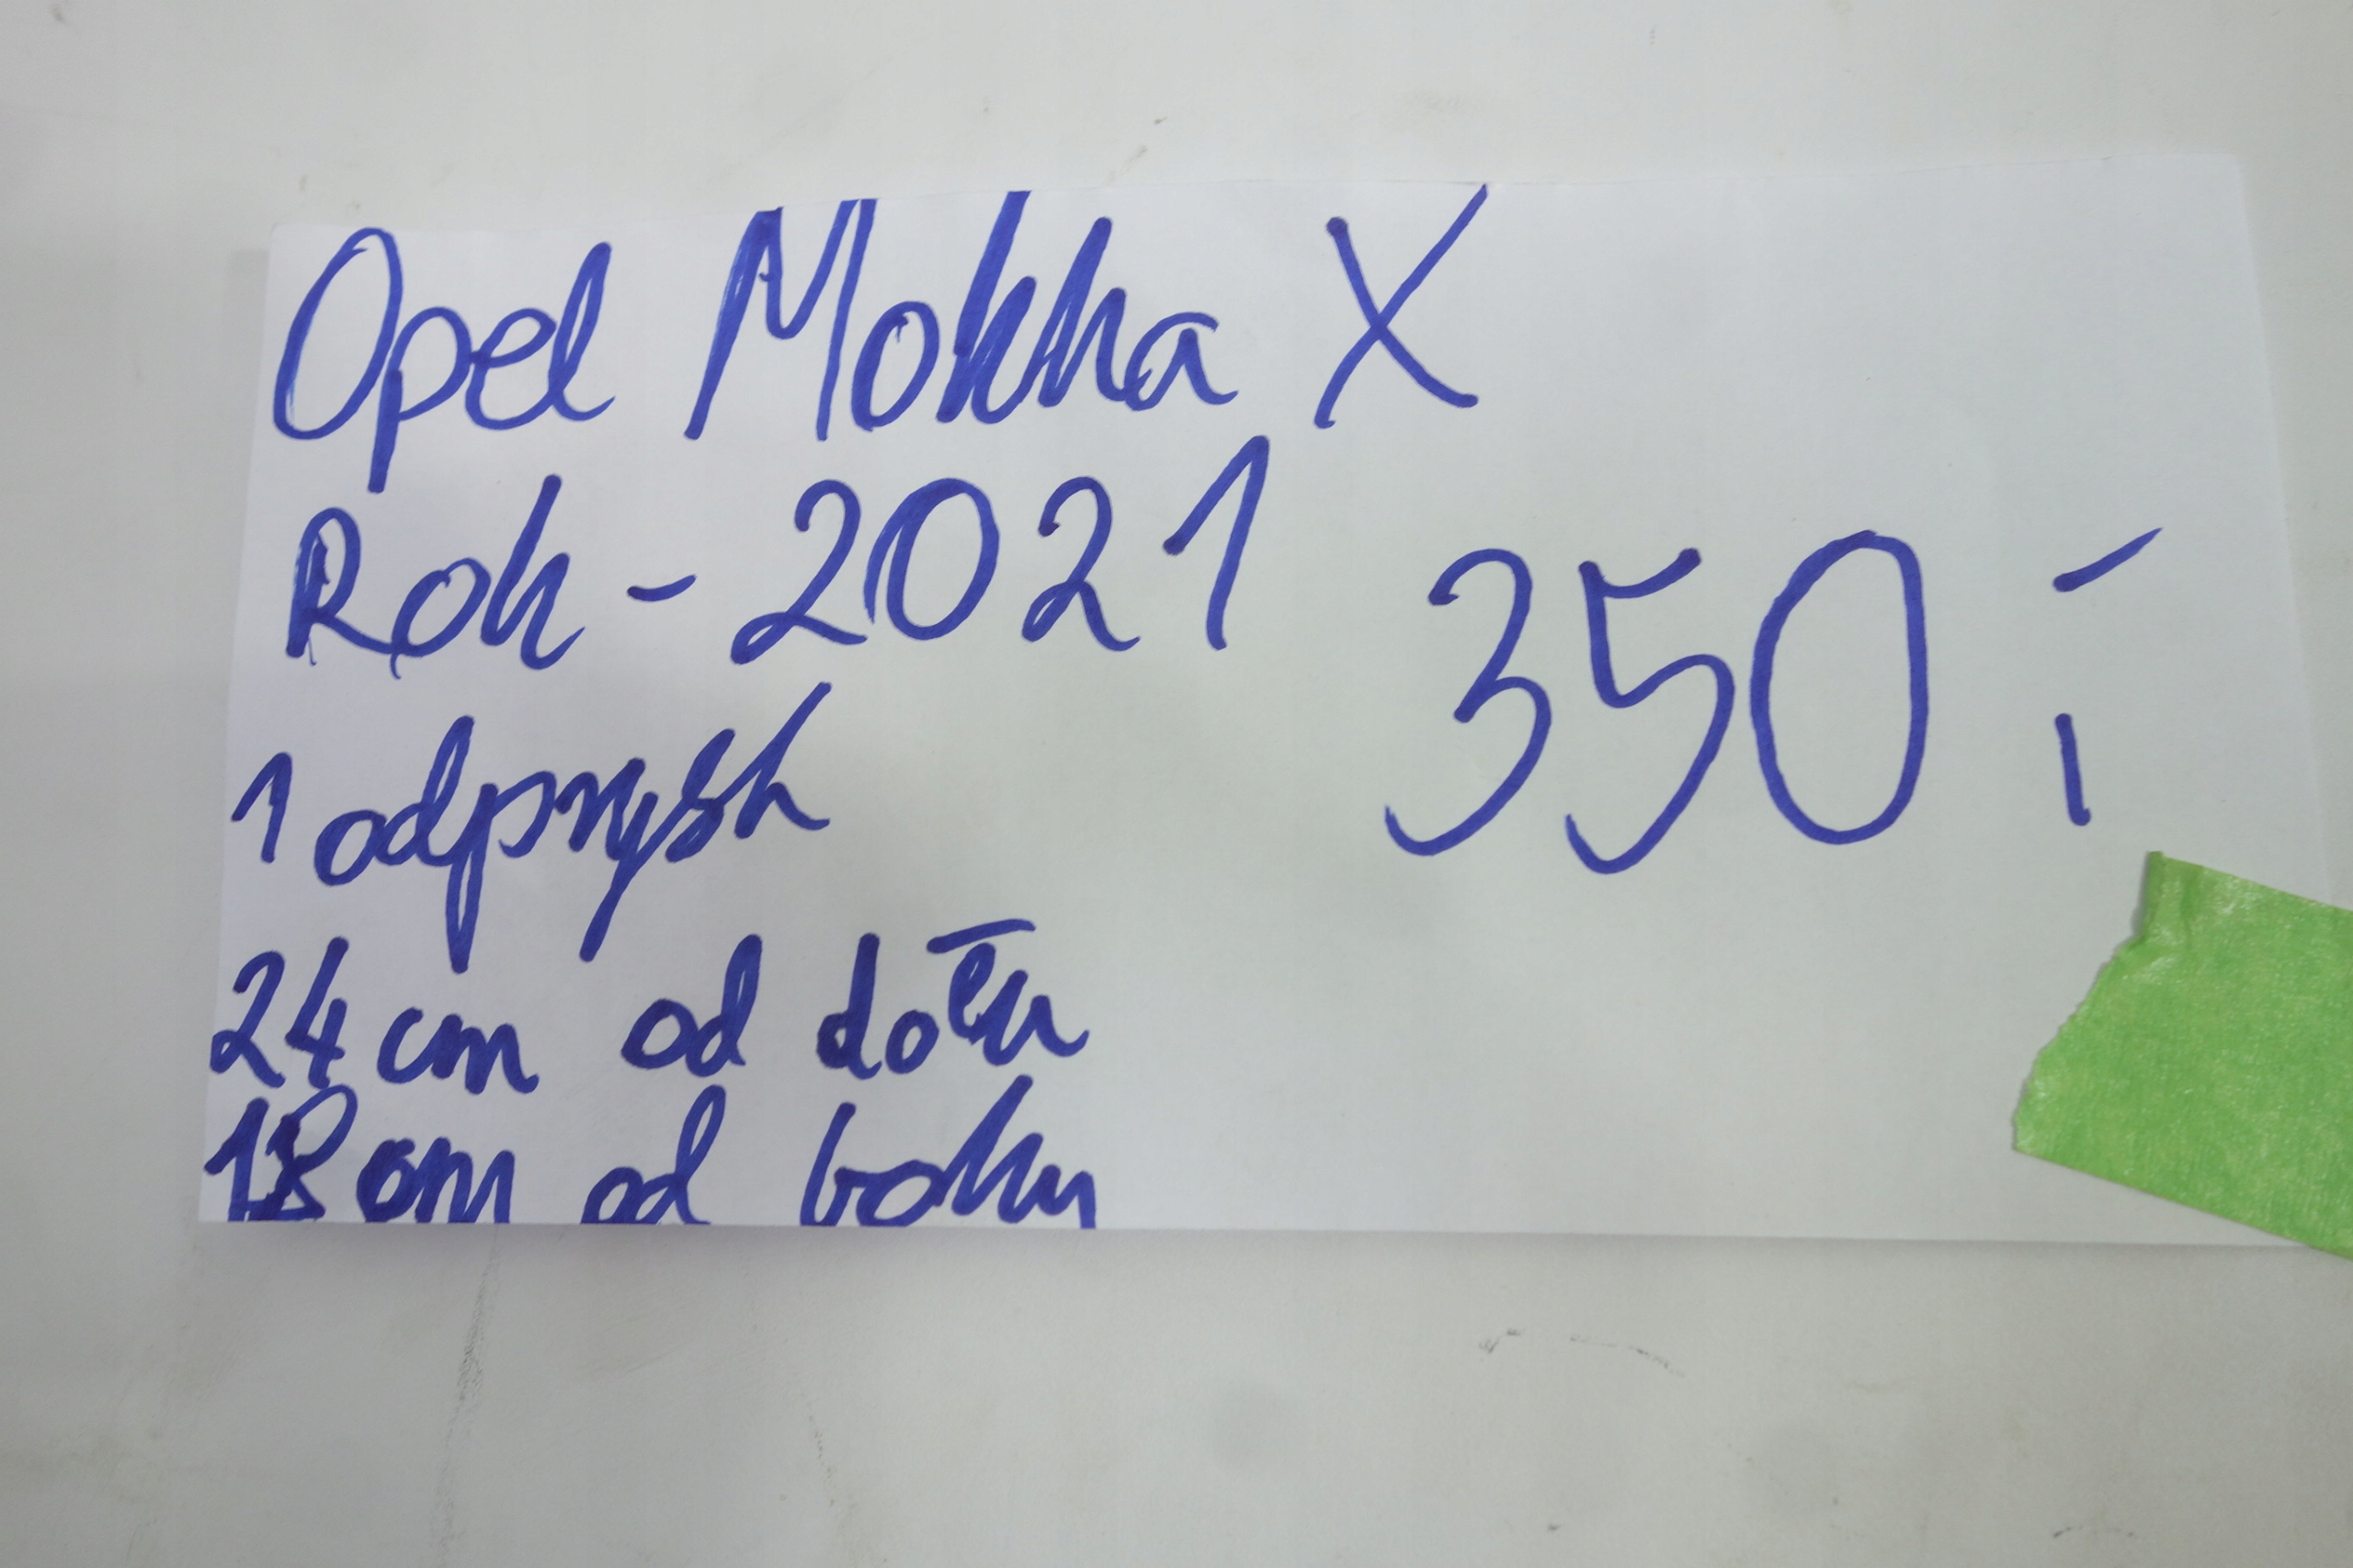 Opel Mokka X
Rok - 2021
350,-
1 odprysk
24 cm od dołu
18 cm od boku